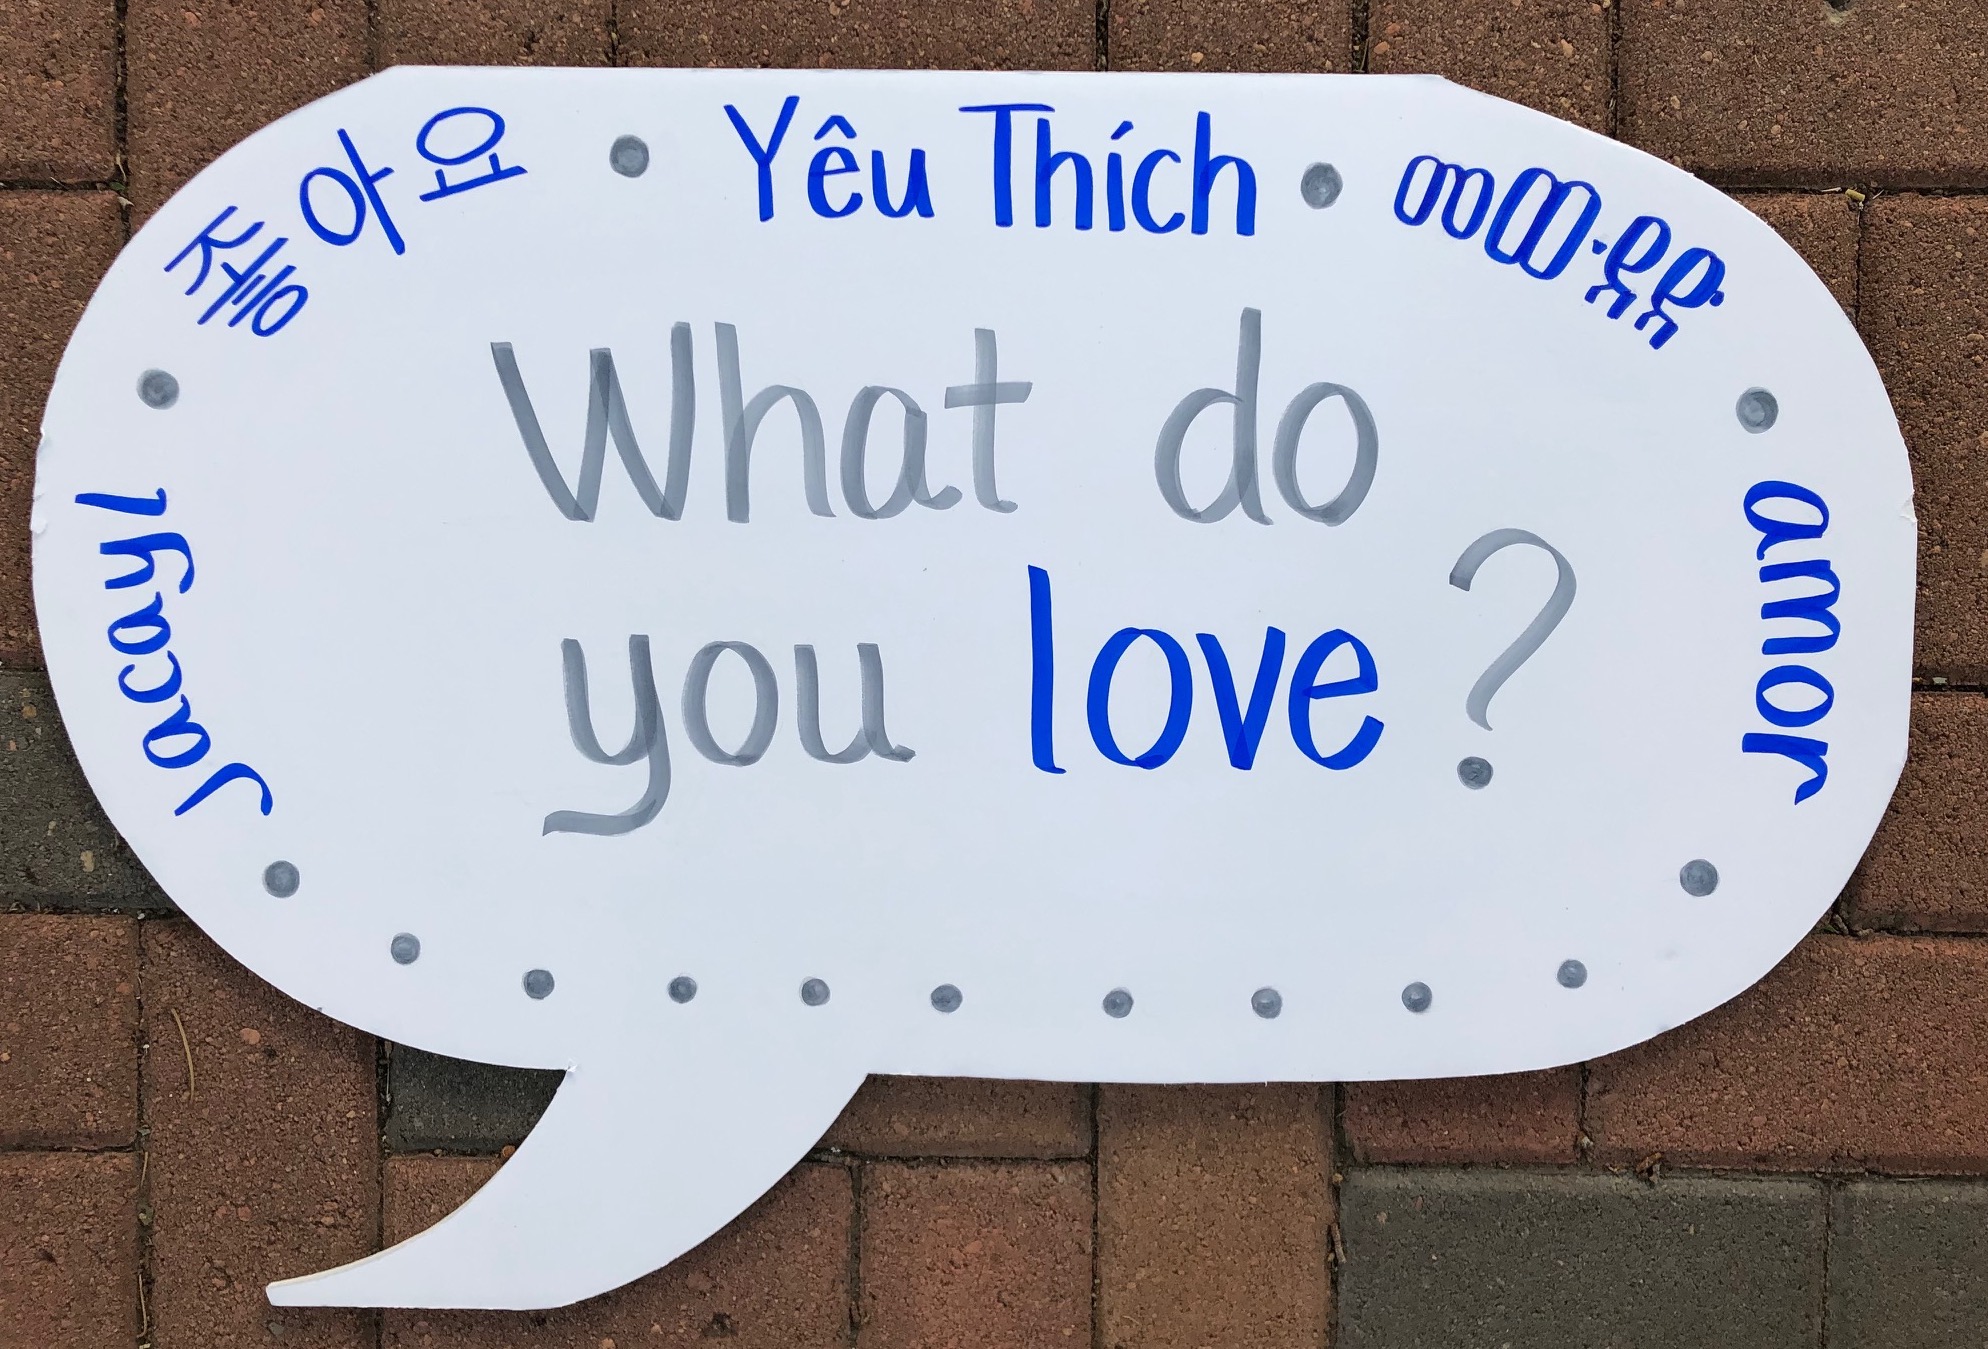 좋아요 • Yêu Thích • መውደድ
Jacayl
amor
What do
you love?